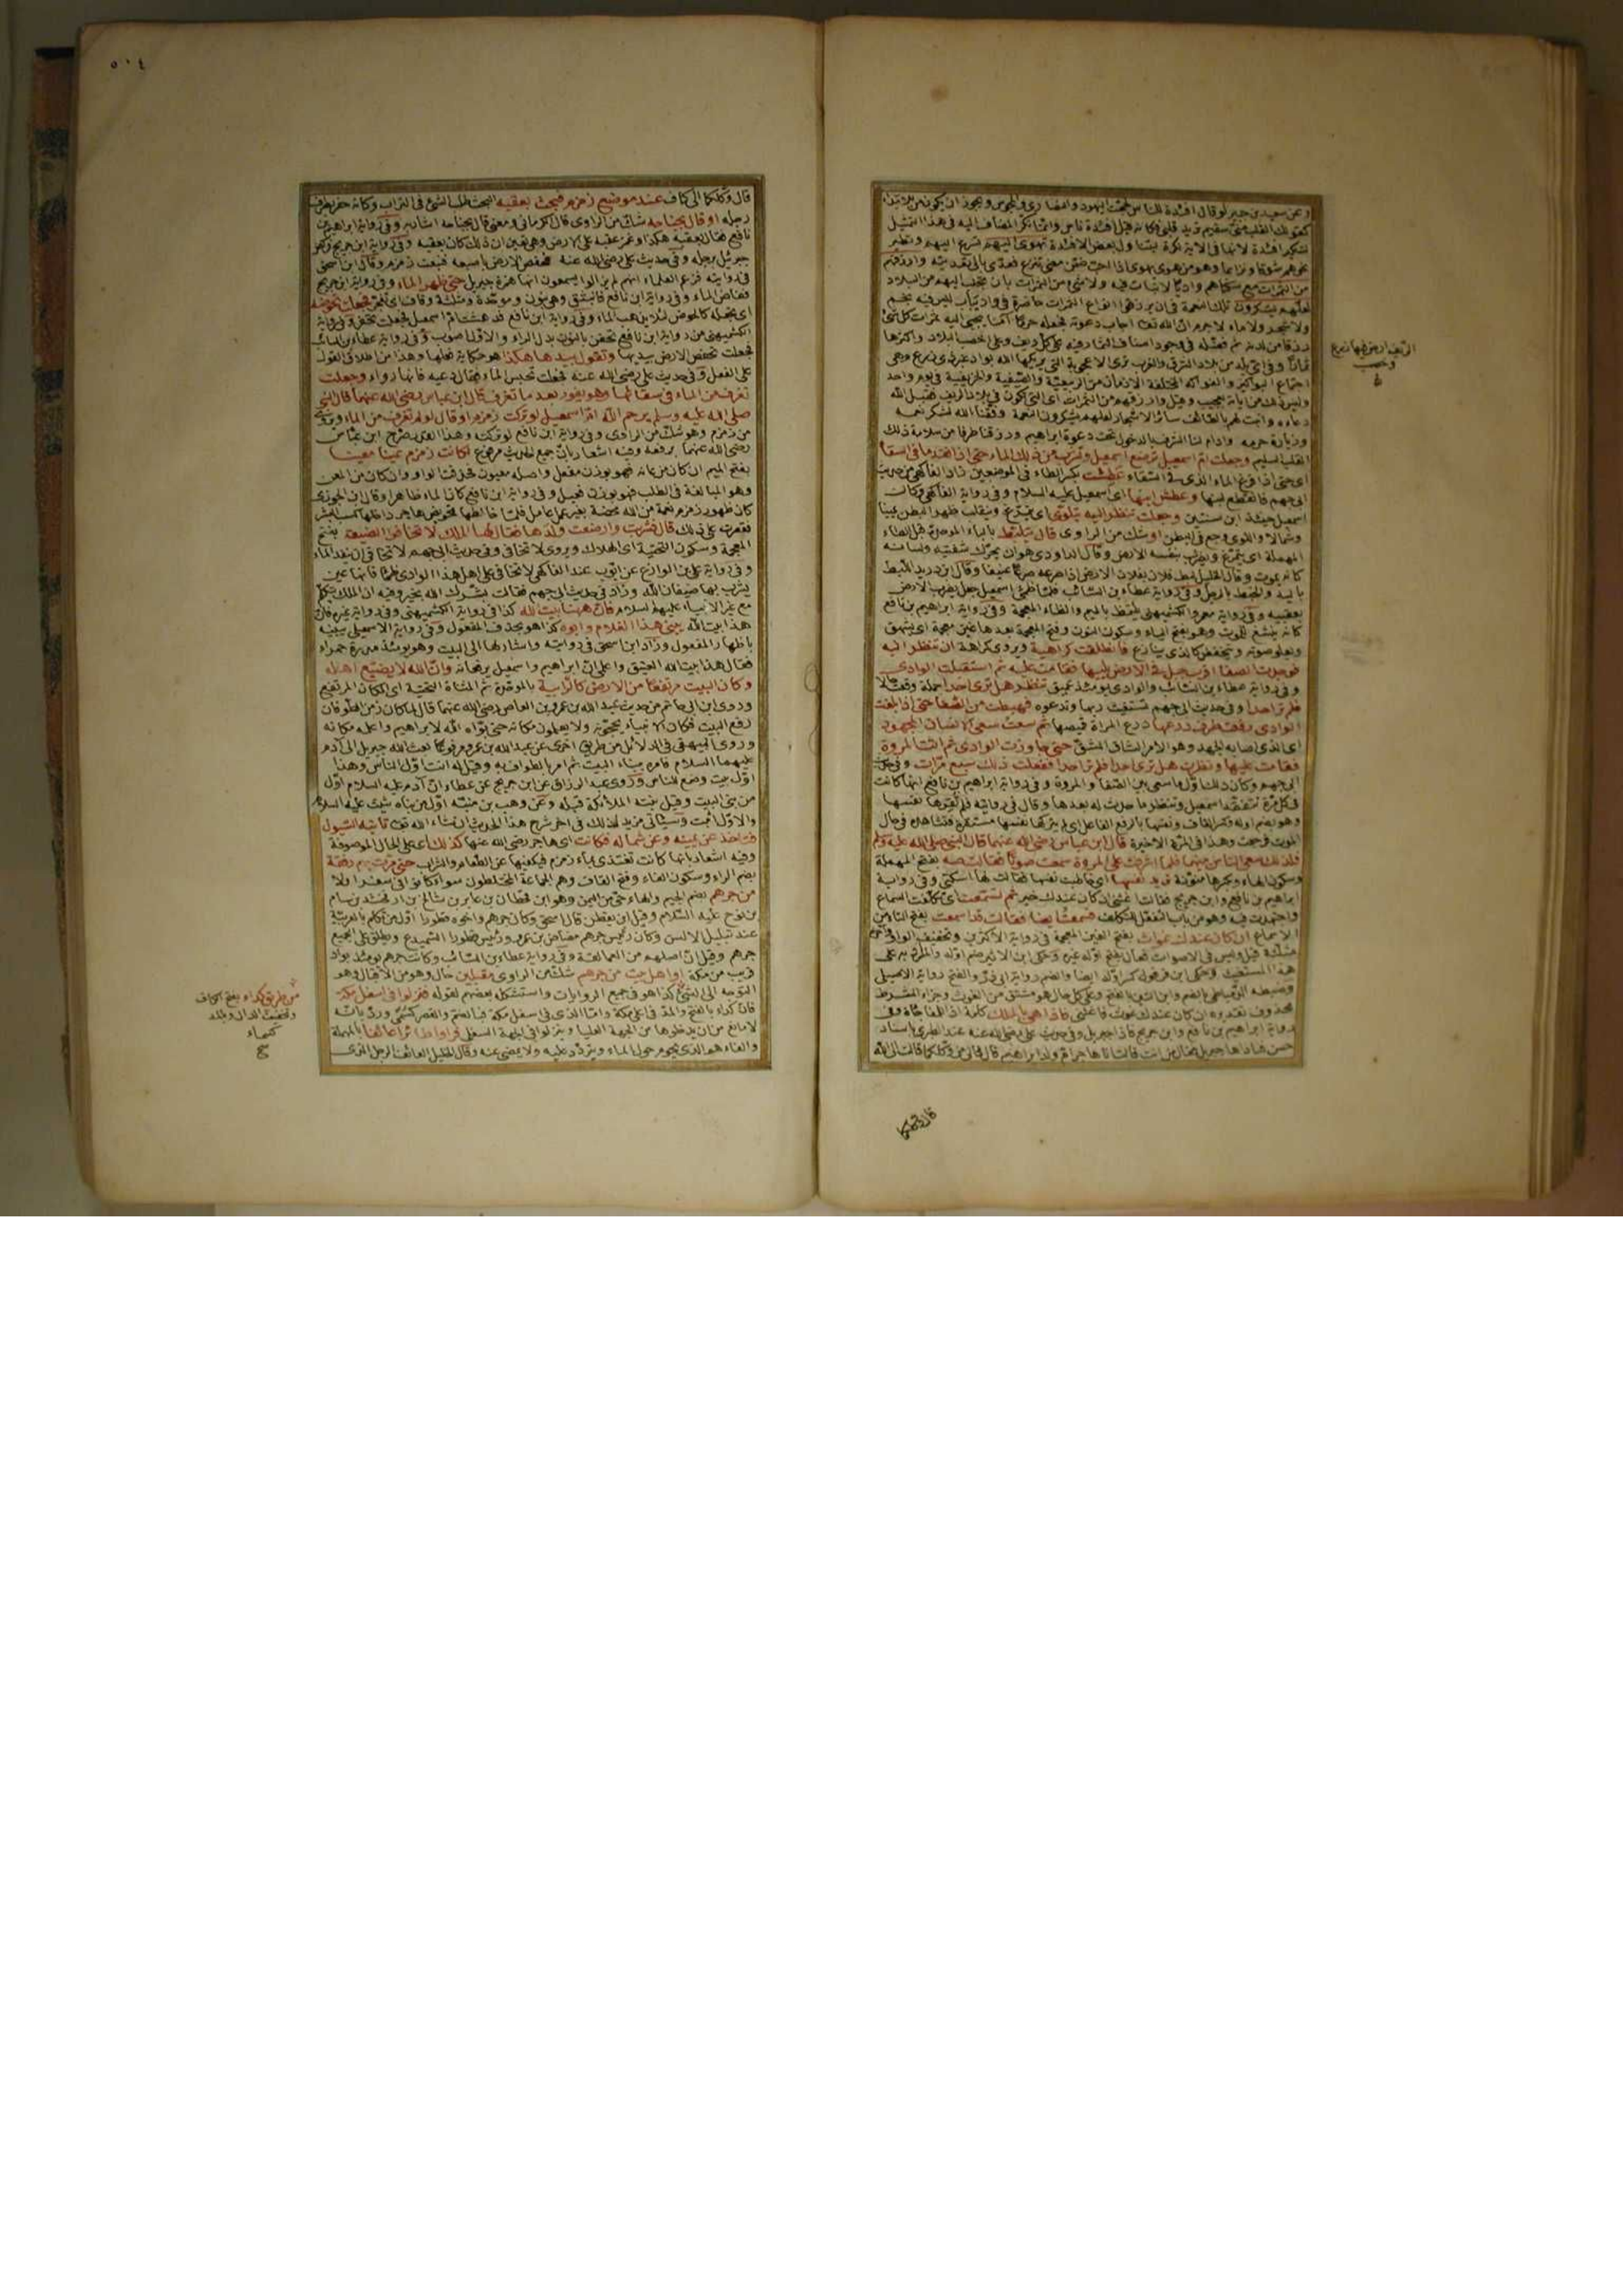 وعن سعيد بن جبير لو قال افئدة الناس لحجت اليهود والنصارى والمجوس ويجوز ان يكون من للابتداء
كقولك القلب مني سقيم تريد قلبي فكانه قيل افئدة ناس وانما نكر المضاف اليه في هذا التمثيل
لتنكير افئدة لانها في الاية نكرة ليتناول بعض الافئدة تهوى اليهم تسرع اليهم وتطير
نحوهم شوقا ونزاعا
من الثمرات مع سكناهم واديا لا نبات فيه ولا شئ من الثمرات بان تجلب اليهم من البلاد
لعلهم يشكرون تلك النعمة في ان يرزقوا انواع الثمرات حاضرة في واد يباب ليس فيه نجم
ولا شجر ولا ماء لا جرم ان الله تعالى اجاب دعوته فجعله حرما آمنا يجبى اليه ثمرات كل شئ
رزقا من لدنه ثم فضله في وجود اصناف الثمار فيه على كل ريف وعلى اخصب البلاد واكثرها
ثمارا وفي اي بلد من بلاد الشرق والغرب ترى الاعجوبة التي يريكها الله بواد غير ذي زرع وهي
اجتماع البواكير والفواكه المختلفة الازمان من الربيعية والصيفية والخريفية في يوم واحد
وليس ذلك من اياته بعجيب
القلب السليم وجعلت ام اسمعيل ترضع اسمعيل وتشرب من ذلك الماء حتى اذا نفد ما في السقاء
اي حتى اذا فرغ الماء الذي في السقاء عطشت بكسر الطاء في الموضعين زاد الفاكهي من حديث
ابي جهم فانقطع لبنها وعطش ابنها اي اسمعيل عليه السلام وفي رواية الفاكهي وكان
اسمعيل حينئذ ابن سنتين وجعلت تنظر اليه يتلوى اي يتمرغ وينقلب ظهرا لبطن يمينا
وشمالا واللوى وجع في البطن او شك من الراوي قال يتلبط بالباء الموحدة قبل الطاء
المهملة اي يتمرغ ويضرب بنفسه الارض وقال الداودي هو ان يحرك شفتيه ولسانه
كانه يموت
يعقبيه وفي رواية معمر والكشميهني يتلمظ بالميم والظاء المعجمة وفي رواية ابراهيم بن نافع
كانه ينشغ للموت وهو بفتح الياء وسكون النون وفتح المعجمة بعدها غين معجمة اي يشهق
ويعلو صوته وينخفض كالذي ينازع فانطلقت كراهية ويروى كراهة ان تنظر اليه
فوجدت الصفا اقرب جبل في الارض يليها فقامت عليه ثم استقبلت الوادي
وفي رواية عطاء بن السائب والوادي يومئذ عميق تنظر هل ترى احدا
فلم تر احدا وفي حديث ابي جهم تستغيث ربها وتدعوه فهبطت من الصفا حتى اذا بلغت
الوادي رفعت طرف درعها درع المراة قميصها ثم سعت سعى الانسان المجهود
اي الذي اصابه الجهد وهو الامر الشاق المشق حتى جاوزت الوادي ثم اتت المروة
فقامت عليها ونظرت هل ترى احدا فلم تر احدا ففعلت ذلك سبع مرات وفي حديث
ابي جهم وكان ذلك اول ما سعى بين الصفا والمروة وفي رواية ابراهيم بن نافع انها كانت
في كل مرة تتفقد اسمعيل وتنظر ما حدث له بعدها وقال في روايته فلم تقرها نفسها
الموت فرجعت وهذا في المرة الاخيرة قال ابن عباس رضى الله عنهما قال النبي صلى الله عليه وسلم
فلذلك سعى الناس بينهما فلما اشرفت على المروة سمعت صوتا فقالت صه بفتح المهملة
وسكون الهاء وبكسرها منونة تريد نفسها اي خاطبت نفسها فقالت لها اسكتي وفي رواية
ابراهيم بن نافع وابن جريج فقالت اغثني ان كان عندك خير ثم تسمعت اي تكلفت السماع
واجتهدت فيه وهو من باب التفعل للتكلف فسمعت ايضا فقالت قد اسمعت بفتح التاء من
الاسماع ان كان عندك غواث بفتح الغين المعجمة في رواية الاكثرين وتخفيف الواو
محذوف تقديره ان كان عندك غوث فاغثني فاذا هي بالملك كلمة اذا للمفاجاة وفي
رواية ابراهيم بن نافع وابن جريج فاذا جبريل وفي حديث علي رضى الله عنه عند الطبري باسناد
حسن فناداها جبريل فقال من انت قالت انا هاجر ام ولد ابراهيم قال فالى من وكلكما قالت الى الله
قال وكلكما
٥٠٤
قال وكلكما الى كاف عند موضع زمزم فبحث بعقبه البحث طلب الشئ في التراب وكانه حفر بطرف
رجله او قال بجناحه شك من الراوي قال الكرماني ومعنى قال بجناحه اشار به وفي رواية ابراهيم بن
نافع فقال بعقبه هكذا وغمز عقبه على الارض وهي تعين ان ذلك كان بعقبه وفي رواية ابن جريج فركض
جبريل برجله وفي حديث علي رضى الله عنه ففحص الارض باصبعه فنبعت زمزم وقال ابن اسحق
في روايته فزعم العلماء انهم لم يزالوا يسمعون انها همزة جبريل حتى ظهر الماء وفي رواية ابن جريج
ففاض الماء وفي رواية ابن نافع فانبثق وهي بنون وموحدة ومثلثة وقاف اي تفجر فجعلت تحوضه
اي تجعله كالحوض لئلا يذهب الماء وفي رواية ابن نافع فدهشت ام اسمعيل فجعلت تحفر وفي رواية
الكشميهني من رواية ابن نافع تحفن بالنون بدل الراء والاول اصوب وفي رواية عطاء بن السائب
فجعلت تفحص الارض بيديها وتقول بيدها هكذا هو حكاية فعلها وهذا من اطلاق القول
على الفعل وفي حديث علي رضى الله عنه فجعلت تحبس الماء فقال دعيه فانها رواء وجعلت
تغرف من الماء في سقائها وهو يفور بعد ما تغرف قال ابن عباس رضى الله عنهما قال النبي
صلى الله عليه وسلم يرحم الله ام اسمعيل لو تركت زمزم او قال لو لم تغرف من الماء
من زمزم وهو شك من الراوي وفي رواية ابن نافع لو تركته وهذا القدر صرح ابن عباس
رضى الله عنهما برفعه وفيه اشعار بان جميع الحديث مرفوع لكانت زمزم عينا معينا
بفتح الميم ان كان من عانه فهو بوزن مفعل واصله معيون فحذفت الواو وان كان من المعن
وهو المبالغة في الطلب فهو بوزن فعيل وفي رواية ابن نافع كان الماء ظاهرا وقال ابن الجوزي
كان ظهور زمزم نعمة من الله محضة بغير عمل عامل فلما خالطها تحويض هاجر داخلها كسب البشر
فقصرت على ذلك قال فشربت وارضعت ولدها فقال لها الملك لا تخافوا الضيعة بفتح
المعجمة وسكون التحتية اي الهلاك ويروى لا تخافي وفي حديث ابي جهم لا تخافي ان ينفد الماء
وفي رواية علي بن الوازع عن ايوب عند الفاكهي لا تخافي على اهل هذا الوادي ظمأ فانها عين
يشرب بها ضيفان الله وزاد في حديث ابي جهم فقالت بشرك الله بخير وفيه ان الملك يتكلم
مع غير الانبياء عليهم السلام فان ههنا بيت الله كذا في رواية الكشميهني وفي رواية غيره فان
هذا بيت الله يبني هذا الغلام وابوه كذا هو بحذف المفعول وفي رواية الاسمعيلي يبنيه
باظهار المفعول وزاد ابن اسحق في روايته واشار لها الى البيت وهو يومئذ مدرة حمراء
فقال هذا بيت الله العتيق واعلمي ان ابراهيم واسمعيل يرفعانه وان الله لا يضيع اهله
وكان البيت مرتفعا من الارض كالرابية بالموحدة ثم المثناة التحتية اي المكان المرتفع
وروى ابن ابي حاتم من حديث عبد الله بن عمرو بن العاص رضى الله عنهما قال لما كان زمن الطوفان
رفع البيت فكان الانبياء يحجونه ولا يعلمون مكانه حتى بواه الله لابراهيم واعلمه مكانه
وروى البيهقي في الدلائل من طريق اخرى عن عبد الله بن عمرو مرفوعا بعث الله جبريل الى آدم
عليهما السلام فامره ببناء البيت ثم امر بالطواف به وقيل له انت اول الناس وهذا
اول بيت وضع للناس وروى عبد الرزاق عن ابن جريج عن عطاء ان آدم عليه السلام اول
من بنى البيت وقيل بنته الملائكة قبله وعن وهب بن منبه اول من بناه شيث عليه السلام
والاول اثبت وسياتي مزيد لذلك في اخر شرح هذا الحديث ان شاء الله تعالى تاتيه السيول
فتاخذ عن يمينه وعن شماله فكانت اي هاجر رضى الله عنها كذلك اي على الحال الموصوفة
وفيه اشعار بانها كانت تغتذى بماء زمزم فيكفيها عن الطعام والشراب حتى مرت بهم رفقة
بضم الراء وسكون الفاء وفتح القاف وهم الجماعة المختلطون سواء كانوا في سفر او لا
من جرهم بضم الجيم والهاء حي من اليمن وهو ابن قحطان بن عابر بن شالخ بن ارفخشد بن سام
بن نوح عليه السلام وقيل ابن يقطن قال ابن اسحق وكان جرهم واخوه قطورا اول من تكلم بالعربية
عند تبلبل الالسن وكان رئيس جرهم مضاض بن عمرو ورئيس قطورا السميدع ويطلق على الجميع
جرهم وقيل ان اصلهم من العمالقة وفي رواية عطاء بن السائب وكانت جرهم يومئذ بواد
قريب من مكة او اهل بيت من جرهم شك من الراوي مقبلين حال وهو من الاقبال وهو
التوجه الى الشئ كذا هو في جميع الروايات واستشكل بعضهم لقوله فنزلوا في اسفل مكة
فان كداء بالفتح والمد في اعلى مكة واما الذي في اسفل مكة فبالضم والقصر ورد بانه
لا مانع من ان يدخلوها من الجهة العليا وينزلوا في الجهة السفلى فراوا طائرا عائفا بالمهملة
والفاء هو الذي يحوم حول الماء ويتردد عليه ولا يمضي عنه وقال الخليل العائف الرجل الذي
من طريق كداء بفتح الكاف
وتخفيف الدال وبالمد
كسماء
صح